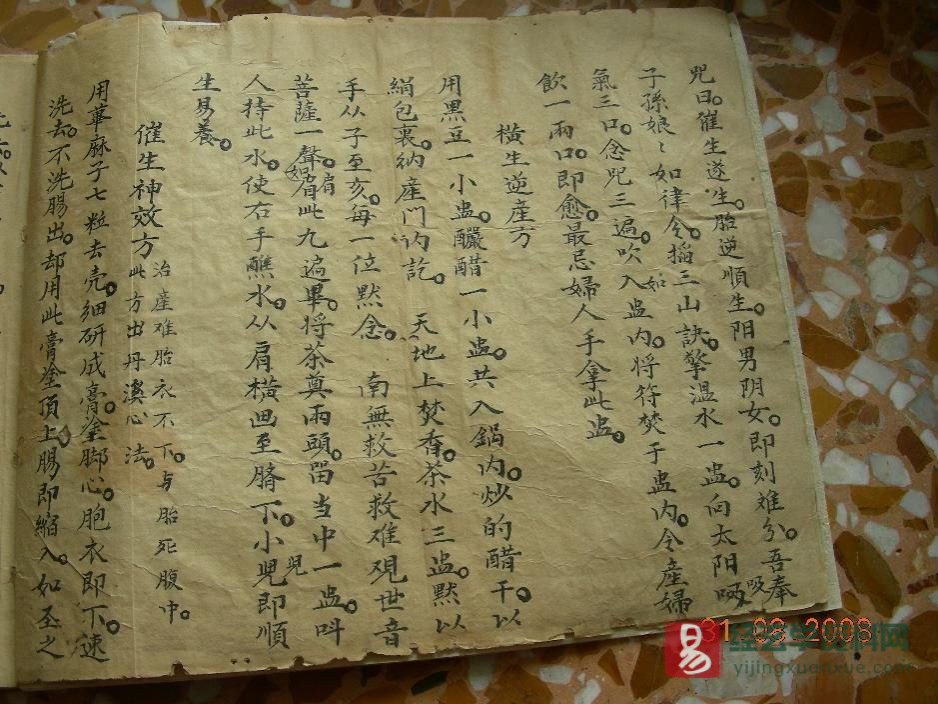 咒曰。催生遂生。胎逆順生。阳男阴女。即刻难分。吾奉
子孫娘〻如律令。搯三山訣。擎温水一盅。向太阳吸
氣三口。念咒三遍。吹入盅内。将符焚于盅内。令產婦
飲一兩口。即愈。最忌婦人手拿此盅。
橫生逆産方
用黑豆一小盅。釅醋一小盅。共入鍋内。炒的醋干。以
絹包裹。納產門内訖。天地上焚香。茶水三盅。黙以
手从子至亥。每一位黙念。南無救苦救难观世音
菩薩一聲。如此九遍畢。将茶奠兩頭。留当中一盅。叫
人持此水。使右手蘸水。从肩橫迴至脐下。小兒即順
生易养。
催生神效方
治產难胎衣不下。与胎死腹中。
此方出丹溪心法。
用草麻子七粒去壳。细研成膏。塗脚心。胞衣即下。速
洗去。不洗腸出。却用此膏塗頂上。腸即縮入。如至之
31 03 2008
易
yijingxuenxue.com